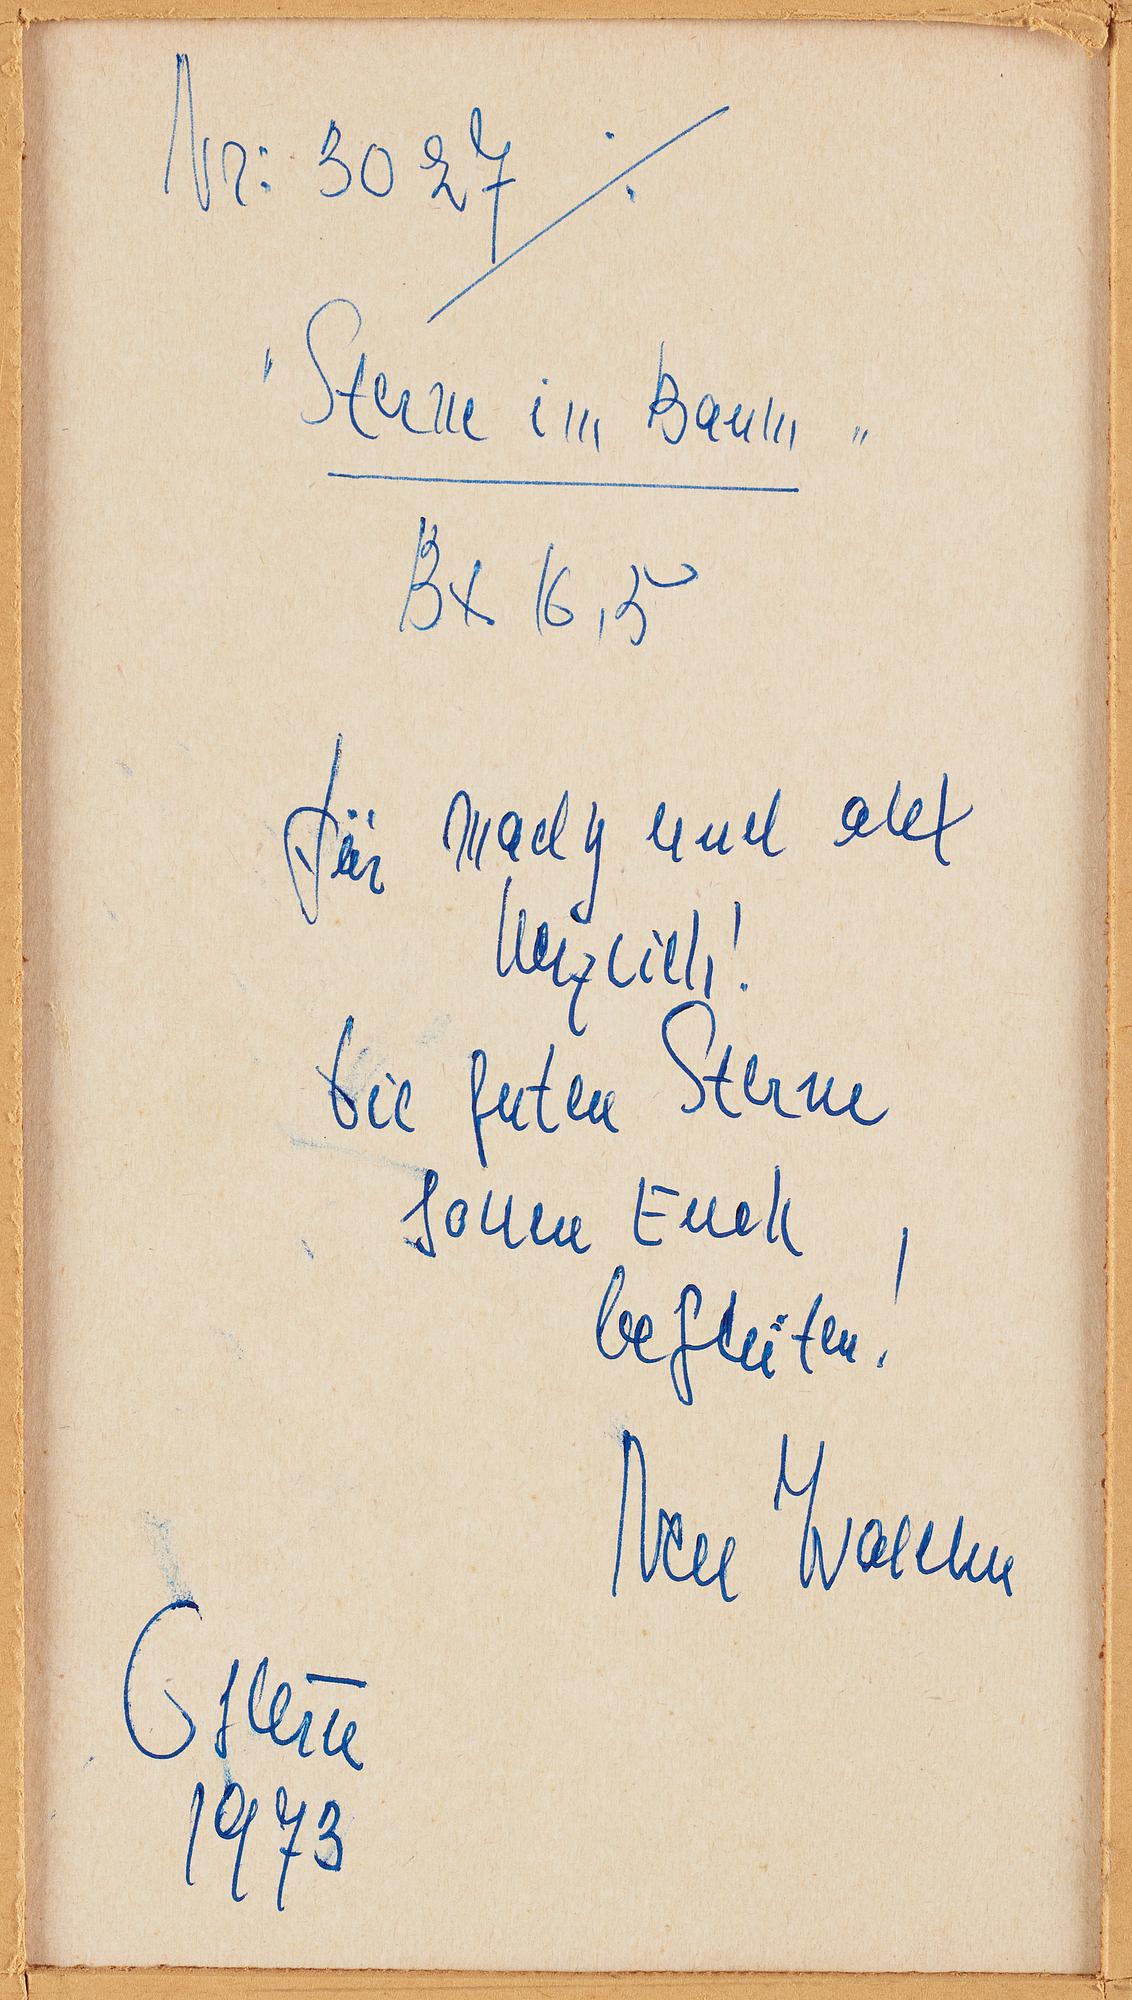 Nr: 3027 ·/·
"Sterne im Baum"
8x 16,5
für Mady und Alex
herzlich!
Die guten Sterne
sollen Euch
begleiten!
Nell Walden
Ostern
1973